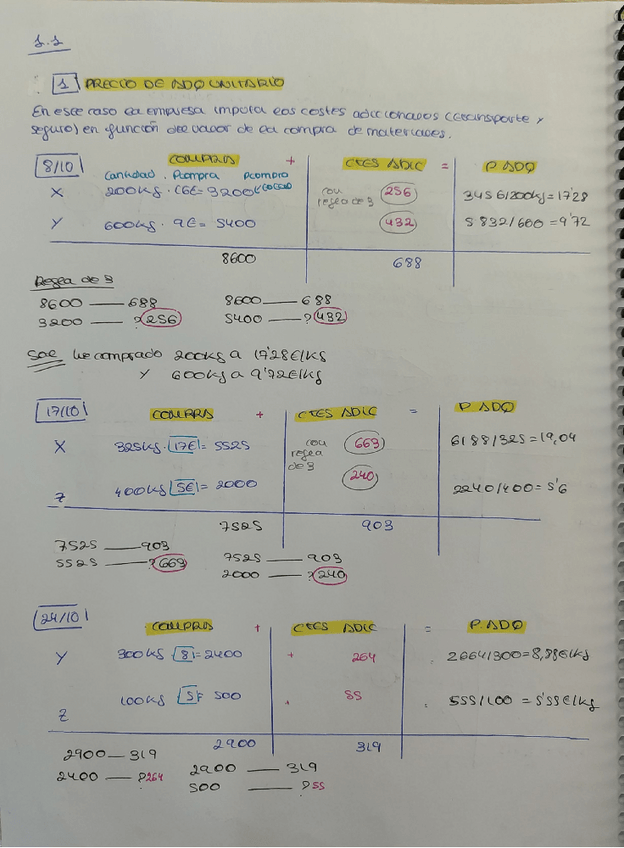 1.1
1 PRECIO DE ADQ UNITARIO
En este caso la empresa imputa los costes adicionales (transporte y
seguro) en función del valor de la compra de materiales.
8/10 COMPRAS + CTES ADIC = P ADQ
Cantidad . Pcompra Pcompra
X 200kg . 16€ = 3200 con regla de 3 256 3456/200kg = 17'28
Y 600kg . 9€ = 5400 432 5832/600 = 9'72
8600 688
Regla de 3
8600 — 688 8600 — 688
3200 — ? 256 5400 — ? 432
Sol he comprado 200kg a 17'28€/kg
Y 600kg a 9'72€/kg
17/10 COMPRAS + CTES ADIC = P ADQ
X 325kg . 17€ = 5525 con regla de 3 663 6188/325 = 19,04
Z 400kg 5€ = 2000 240 2240/400 = 5'6
7525 903
7525 — 903 7525 — 903
5525 — ? 663 2000 — ? 240
24/10 COMPRAS + CTES ADIC = P ADQ
Y 300kg 8 = 2400 + 264 2664/300 = 8,88€/kg
Z 100kg 5 = 500 + 55 555/100 = 5'55€/kg
2900 319
2900 — 319 2900 — 319
2400 — ? 264 500 — ? 55